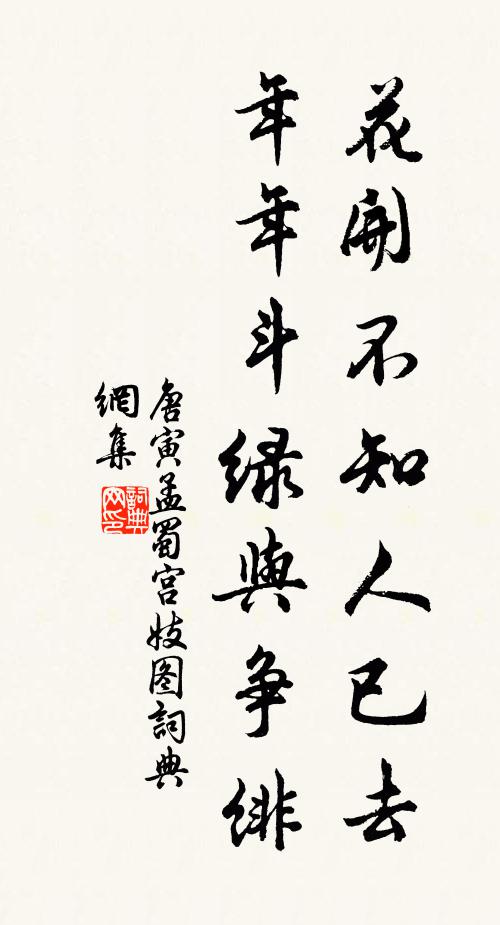 花開不知人已去
年年斗緑與争緋
唐寅孟蜀宮妓图詞典
網集
詞典
网印